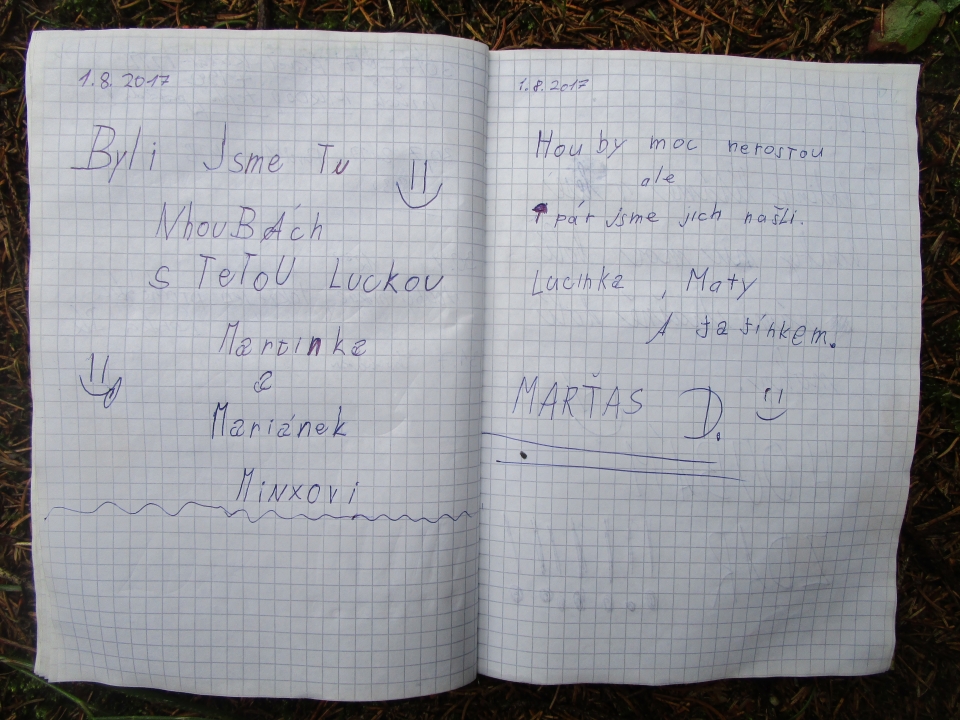 1.8.2017
Byli Jsme Tu
NhouBÁch
s TeToU Luckou
Martinka
a
Mariánek
MiNxovi
1.8.2017
Houby moc nerostou
ale
pár jsme jich našli.
Lucinka, Maty
A ta tínkem.
MARŤAS D.